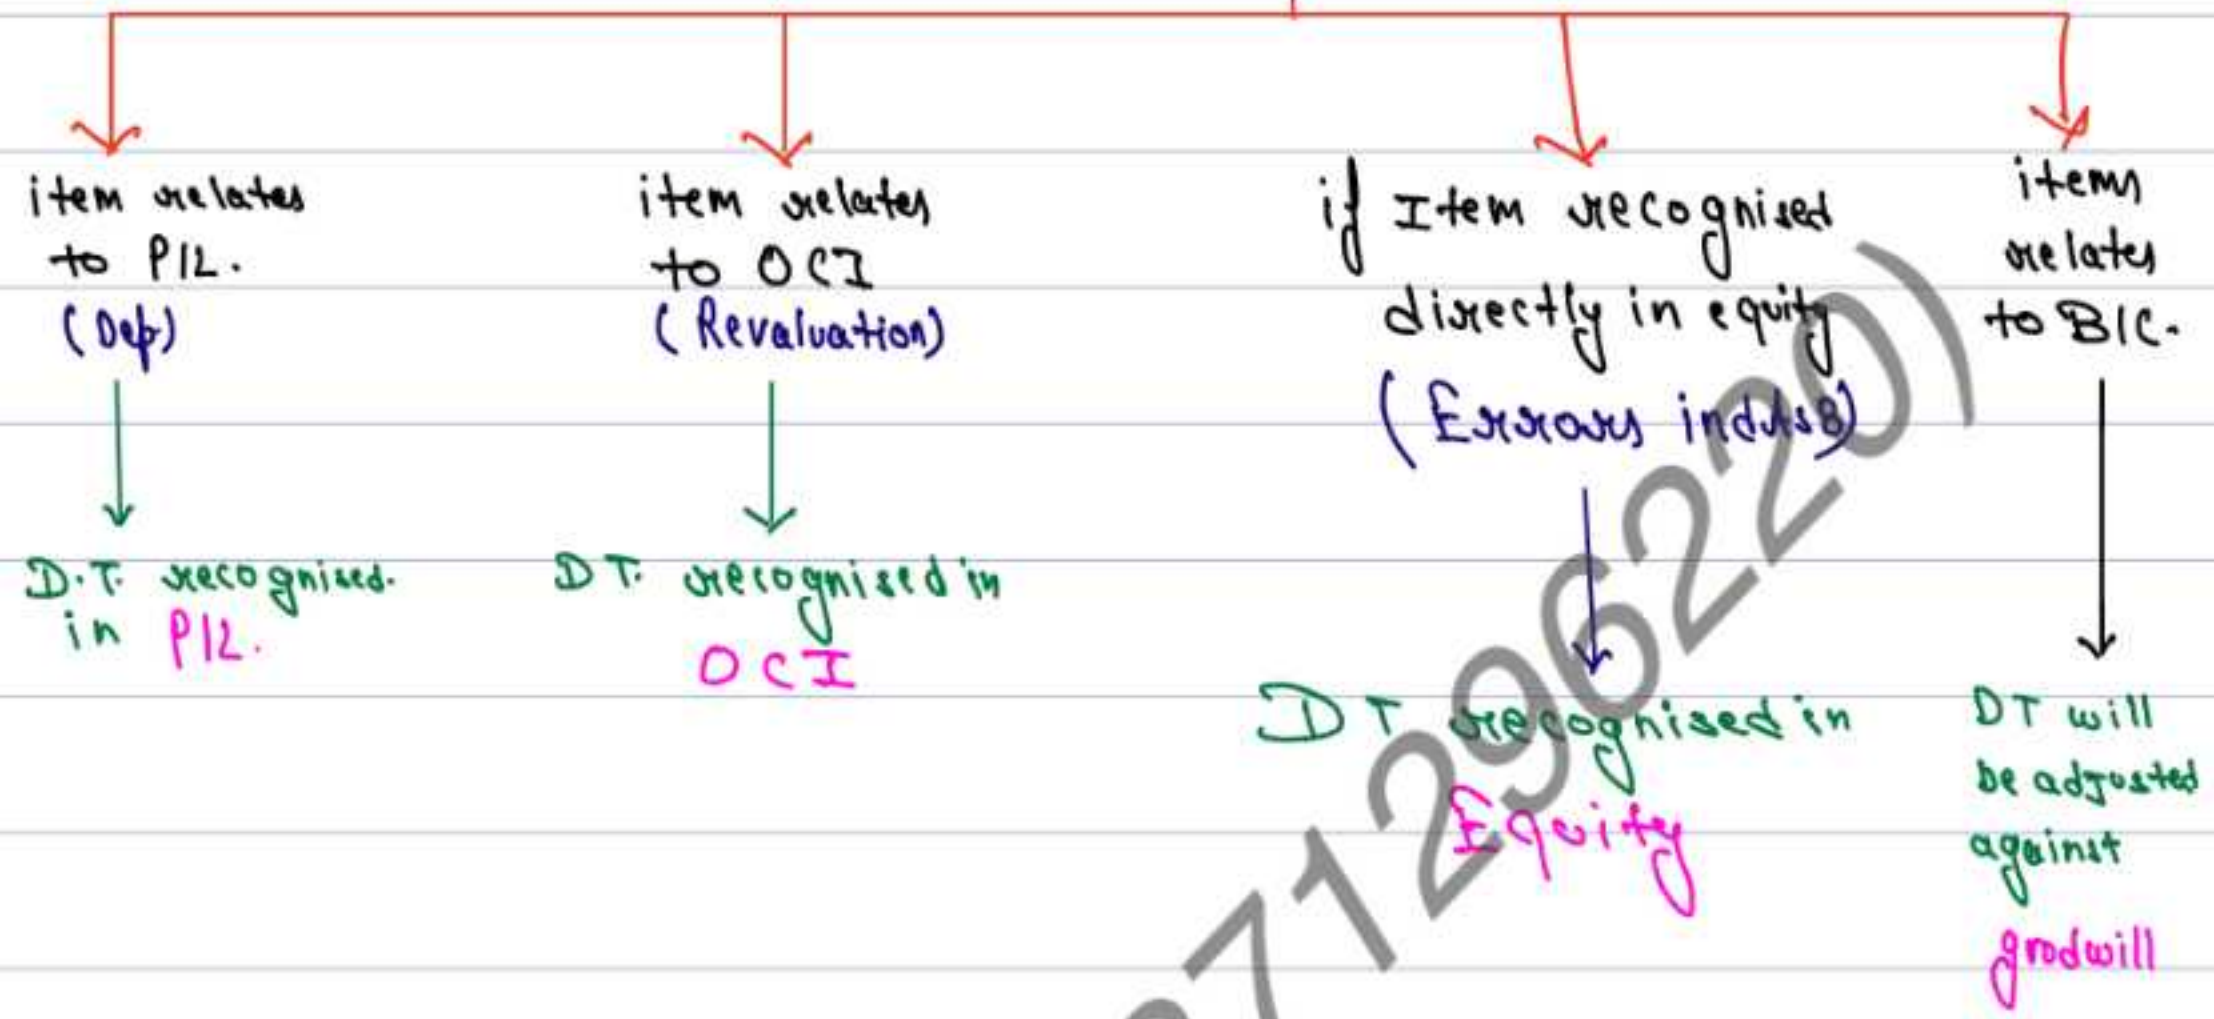 item relates
to P/L.
(Dep)
D.T. recognised.
in P/L.
item relates
to OCI
(Revaluation)
DT. recognised in
OCI
if Item recognised
directly in equity
(Errors indAS8)
DT recognised in
Equity
items
relates
to B/C.
DT will
be adjusted
against
goodwill
71296220)